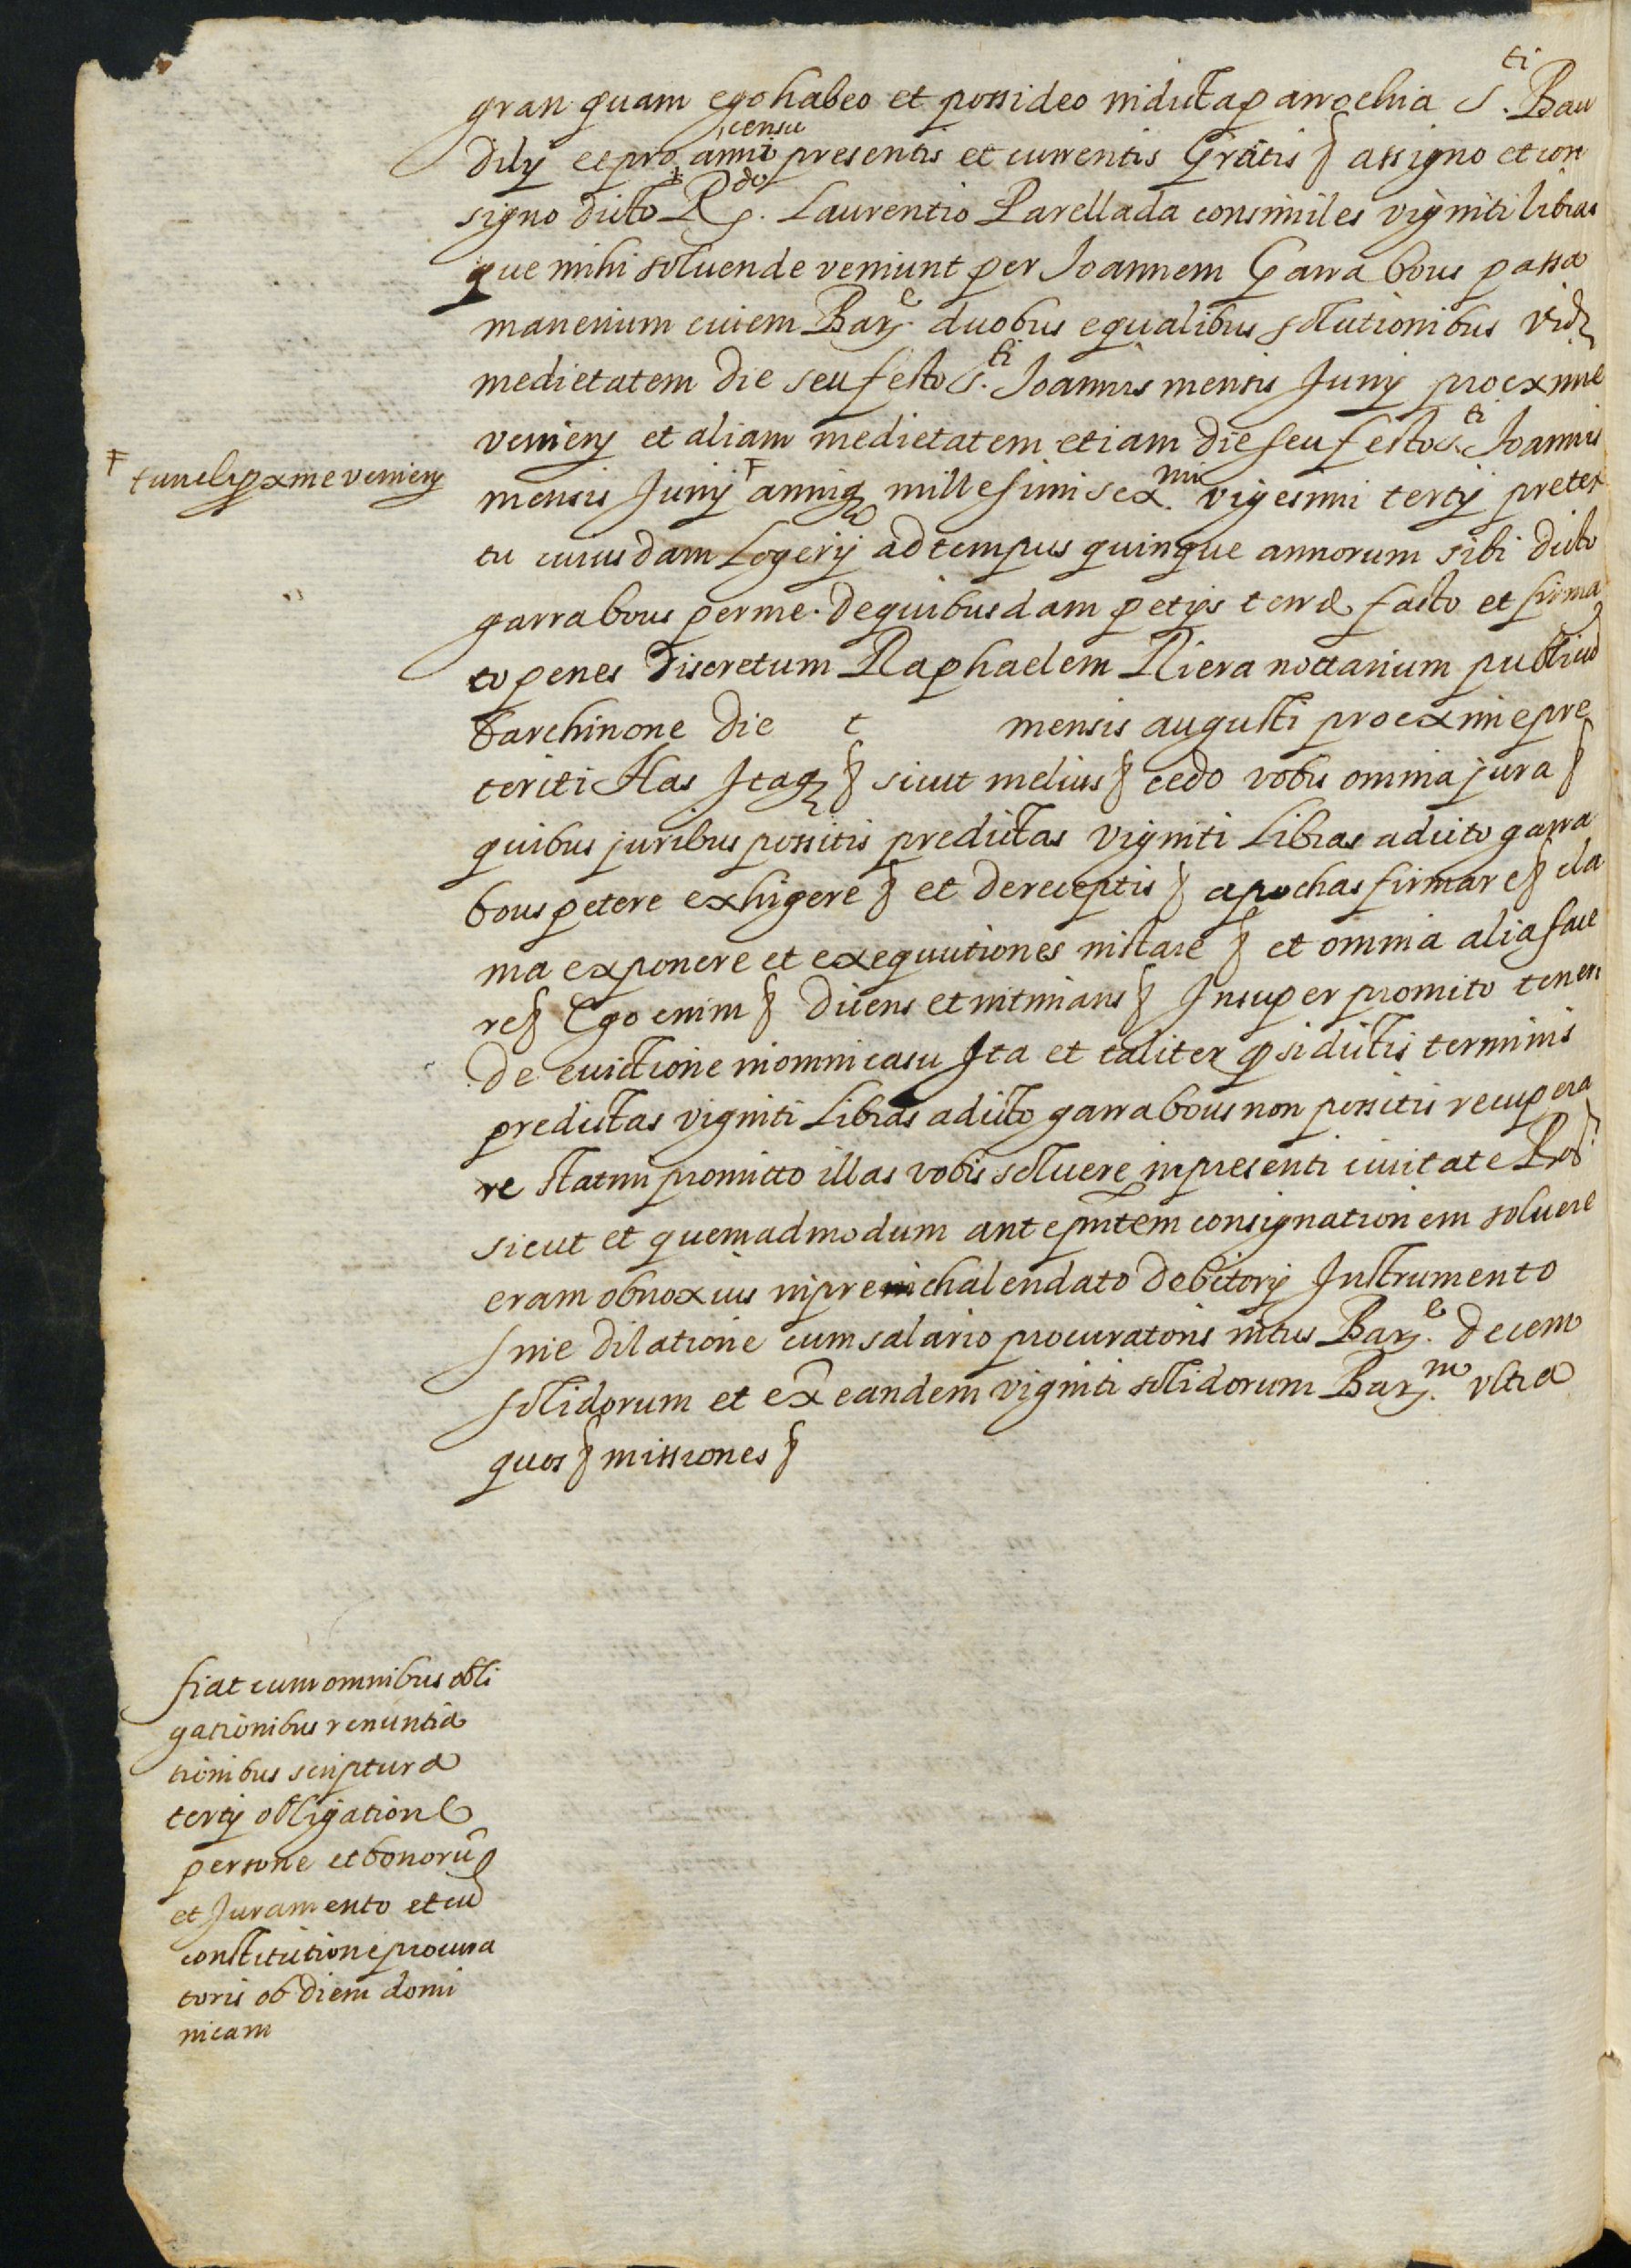 gran quam ego habeo et possideo in dicta parrochia S.ti Bau
dilij et pro censu anni presentis et currentis Gratis § assigno et con
signo dicto R.do Laurentio Parellada consimiles viginti libras
que mihi soluende veniunt per Joannem Garrabous passa
manerium ciuem Bar.e duobus equalibus solutionibus vidz
medietatem die seu festo S.ti Joannis mensis Junij proexime
venien et aliam medietatem etiam die seu festo S.ti Joannis
Ŧ tunch pxme venien
mensis Junij Ŧ anniq millesimi sex.mi vigesimi tertij pretex
tu cuiusdam Logerij ad tempus quinque annorum sibi dicto
garrabous per me de quibusdam petijs terre facto et firma
to penes discretum Raphaelem Riera notarium publicu
Barchinone die t mensis augusti proexime pre
teriti Has Itaq § sicut melius § cedo vobis omnia jura §
quibus juribus possitis predictas viginti Libras a dicto garra
bous petere exhigere § et de receptis § apochas firmare § cla
ma exponere et exequutiones instare § et omnia alia face
re § Ego enim § dicens et intimans § Insuper promito teneri
de euictione in omni casu Ita et taliter q si dictis terminis
predictas viginti Libras a dicto garrabous non possitis recupera
re statim promitto illas vobis soluere in presenti ciuitate
sicut et quemadmodum ante pntem consignationem soluere
eram obnoxius in pre chalendato debitorij Instrumento
sine dilatione cum salario procuratoris intus Bar.e decem
solidorum et ex eandem viginti solidorum Bar.m vltra
quos § missiones §
fiat cum omnibus obli
gationibus renuntia
tionibus scriptura
tertij obligatione
persone et bonorũ
et Juramento et cũ
constitutione procura
toris ob diem domi
nicam